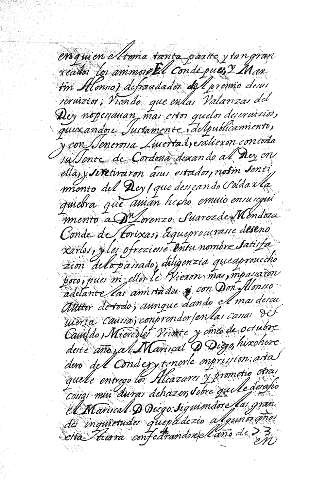 en quien el tenia tanta parte y tan gran
los animos. El Conde pues, y Mar
tin Alonso, defraudados del premio de sus
servicios, viendo que en las Valanzas del
Rey no pesavan, mas esto que los deservicios,
quexandose Justamente, i del publicamente,
y con Sonerosa livertad, se salieron con toda
su Jente de Cordova dexando al Rey en
ella, y se retiraron a sus estados, no sin senti
miento del Rey, que deseando soldar la
quiebra que avian hecho envio en segui
miento a Dn. Lorenzo Suarez de Mendoza
Conde de Coruña, que procurase detene
rerlos, y les ofreciese en su nombre satisfa
zion de lo pasado, diligenzia que aprovecho
poco, pues ni ellos le vieron mas, ni pasaron
adelante las amistades con Don Alonso
de todo, aunque dando el mas descu
vierta causa, con prender en las casas de
Cavildo, Miercoles Veinte y cinco de octubre
deste año, al Mariscal D. Diego, hixo here
dero del Conde, y tenerle en prission, asta
que le entrego los Alcazares y prometio otras
cosas mui duras de hazer, sobre que le desafio
el Mariscal D. Diego, siguiendose las gran
des inquietudes que padezio algunos años
esta tierra el año de 73
en